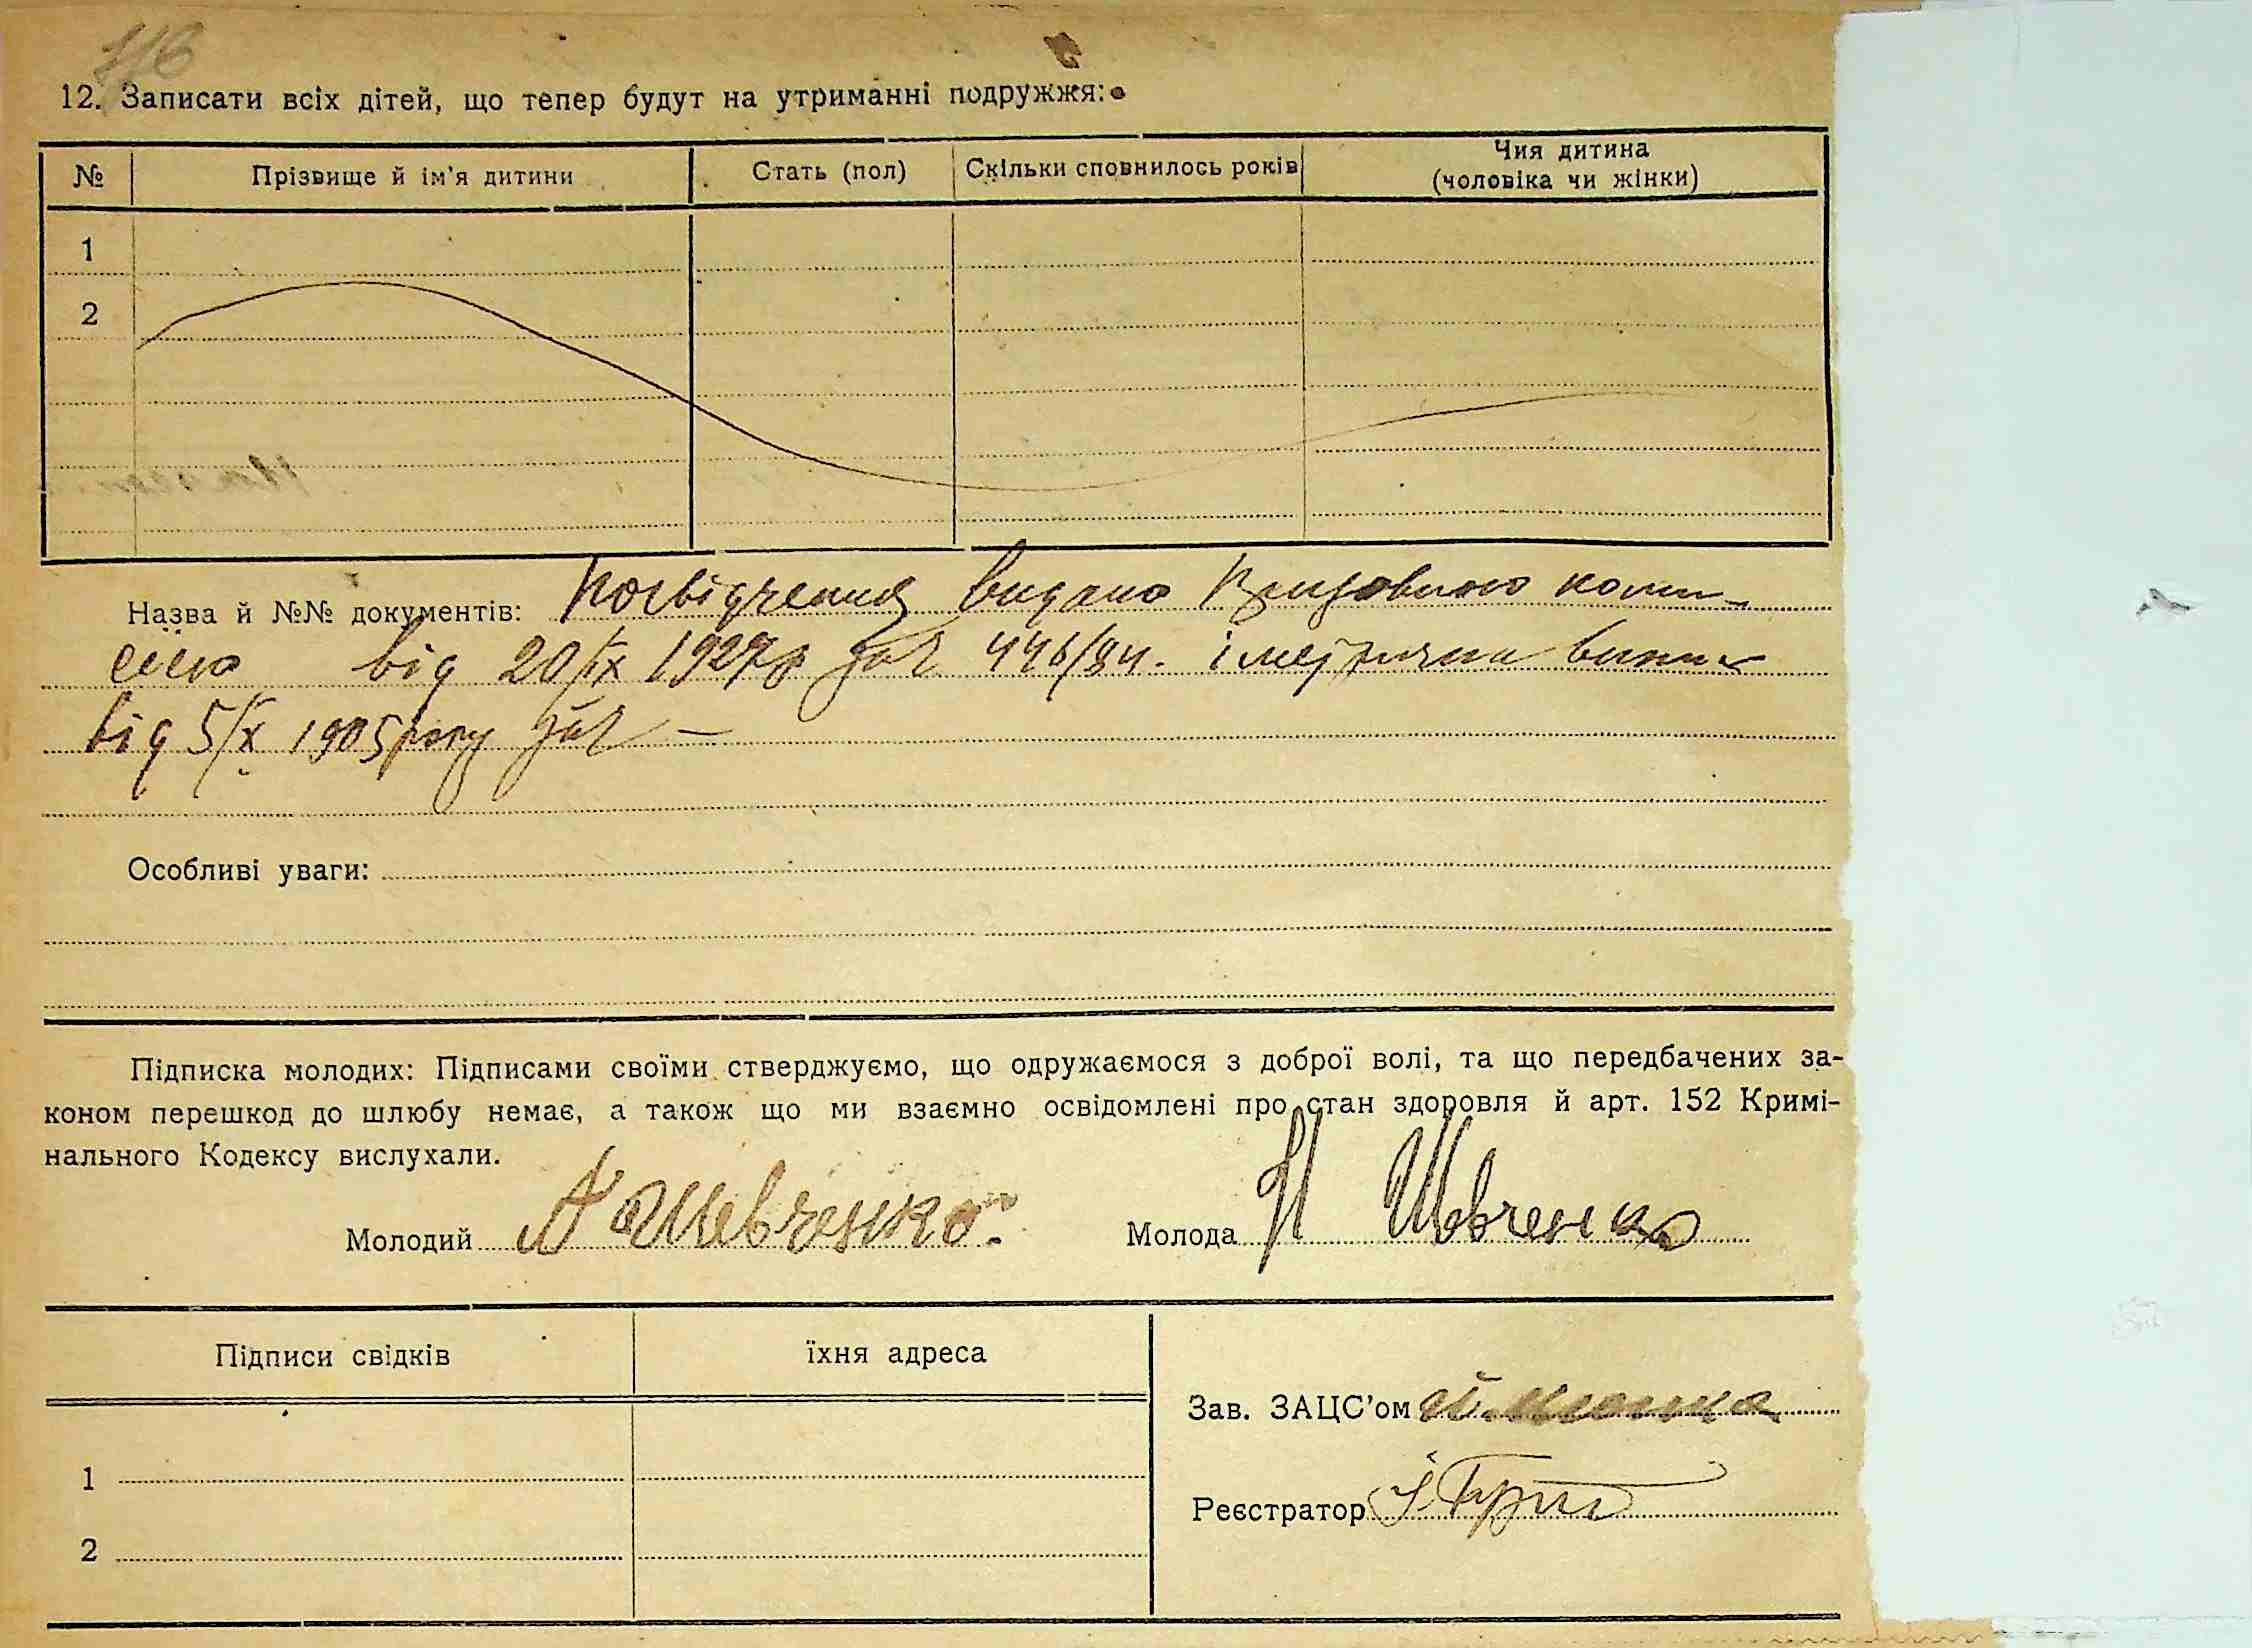 116
12. Записати всіх дітей, що тепер будут на утриманні подружжя:
№ Прізвище й ім'я дитини Стать (пол) Скільки сповнилось років Чия дитина
(чоловіка чи жінки)
1
2
Назва й №№ документів: Посвідчення видано Призовною коми-
сією від 20/IX 1927 р за № 446/84. і метрична випис
від 5/X 1905 року за № —
Особливі уваги:
Підписка молодих: Підписами своїми стверджуємо, що одружаємося з доброї волі, та що передбачених за-
коном перешкод до шлюбу немає, а також що ми взаємно освідомлені про стан здоровля й арт. 152 Кримі-
нального Кодексу вислухали.
Молодий А Шевченко. Молода Н Шевченко
Підписи свідків їхня адреса
Зав. ЗАЦС'ом
1
Реєстратор
2